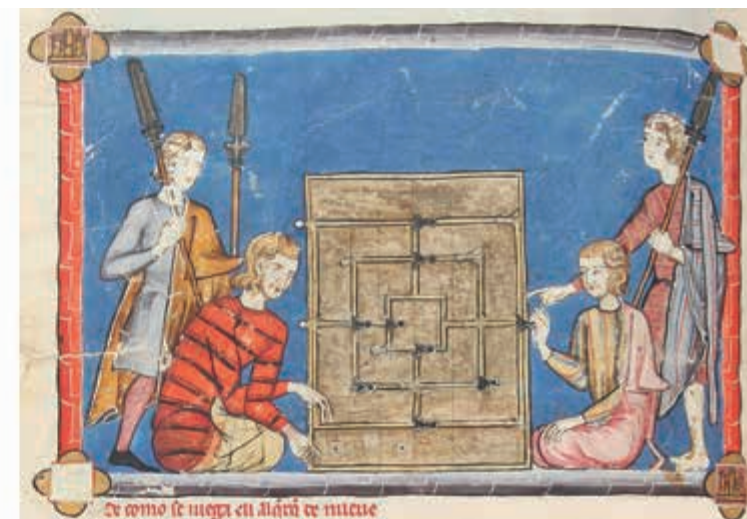 De como se iuega el alq̃rq̃ de nueue